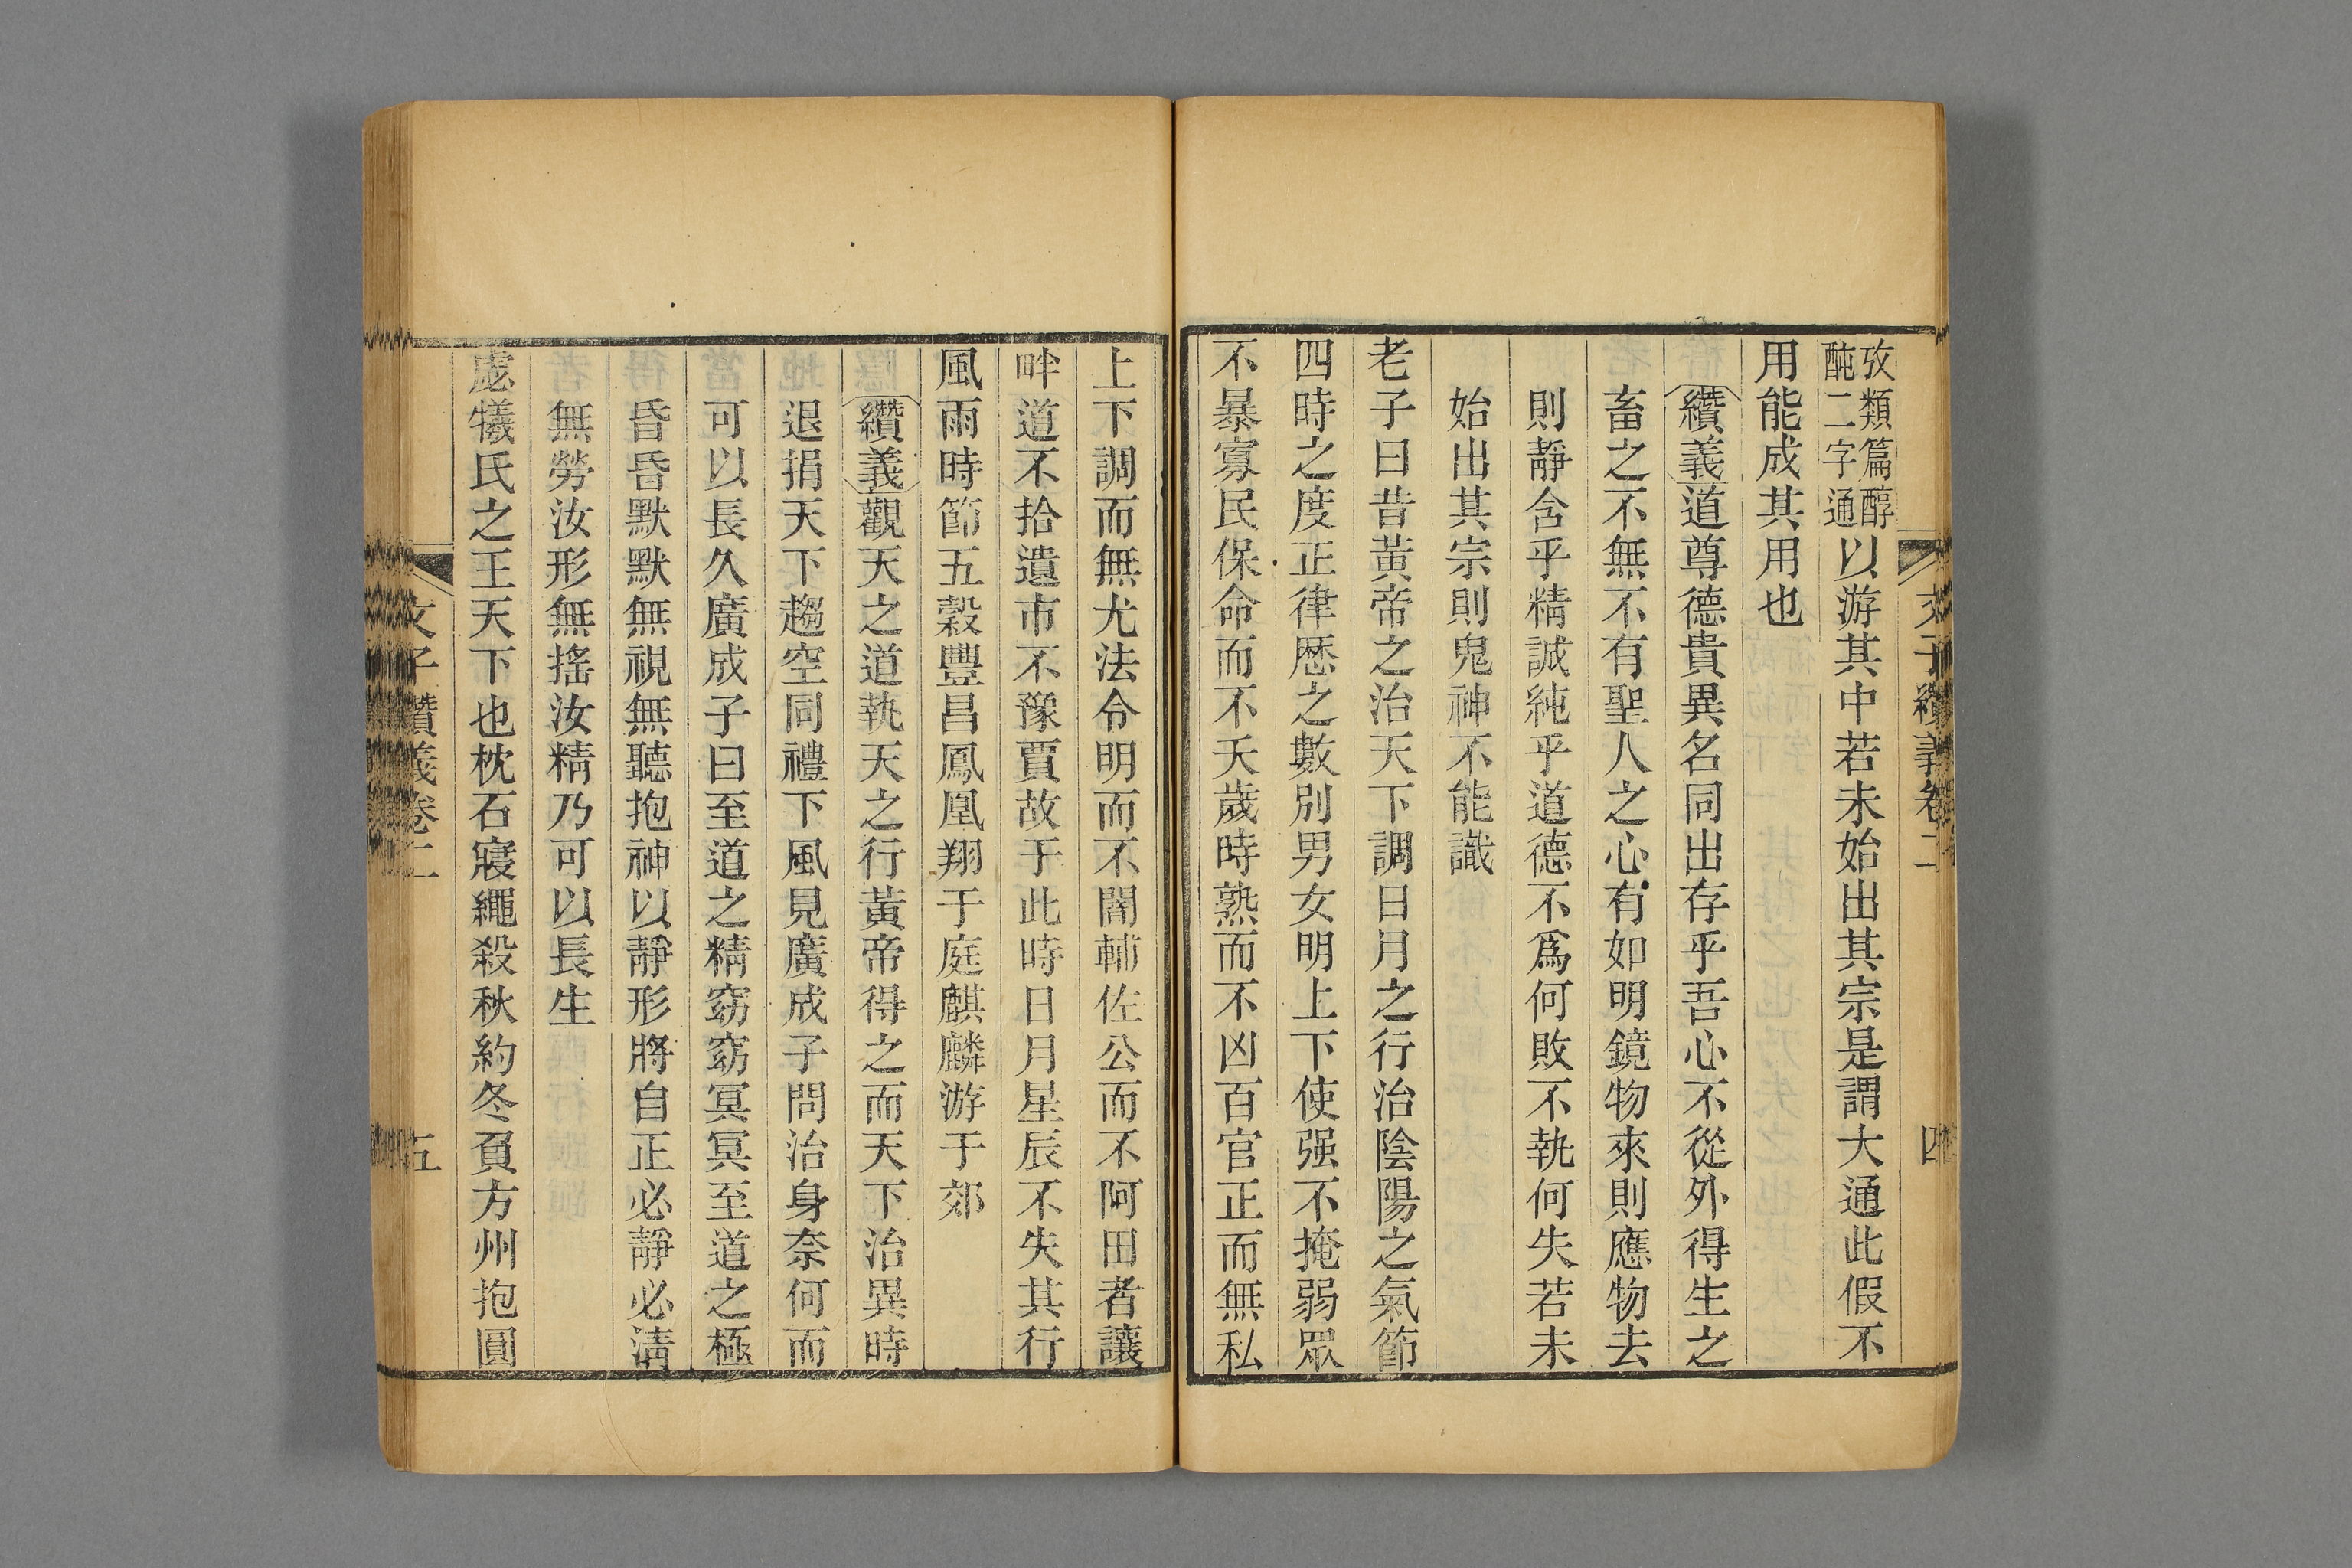 文子纘義卷二 四
攷類篇醇
酏二字通以游其中若未始出其宗是謂大通此假不
用能成其用也
纘義道尊德貴異名同出存乎吾心不從外得生之
畜之不無不有聖人之心有如明鏡物來則應物去
則靜含乎精誠純乎道德不爲何敗不執何失若未
始出其宗則鬼神不能識
老子曰昔黃帝之治天下調日月之行治陰陽之氣節
四時之度正律厯之數別男女明上下使强不掩弱眾
不暴寡民保命而不夭歲時熟而不凶百官正而無私
上下調而無尤法令明而不闇輔佐公而不阿田者讓
畔道不拾遺市不豫賈故于此時日月星辰不失其行
風雨時節五穀豐昌鳳凰翔于庭麒麟游于郊
纘義觀天之道執天之行黃帝得之而天下治異時
退捐天下趨空同禮下風見廣成子問治身奈何而
可以長久廣成子曰至道之精窈窈冥冥至道之極
昏昏默默無視無聽抱神以靜形將自正必靜必淸
無勞汝形無搖汝精乃可以長生
虙犧氏之王天下也枕石寢繩殺秋約冬負方州抱圓
文子纘義卷二 五